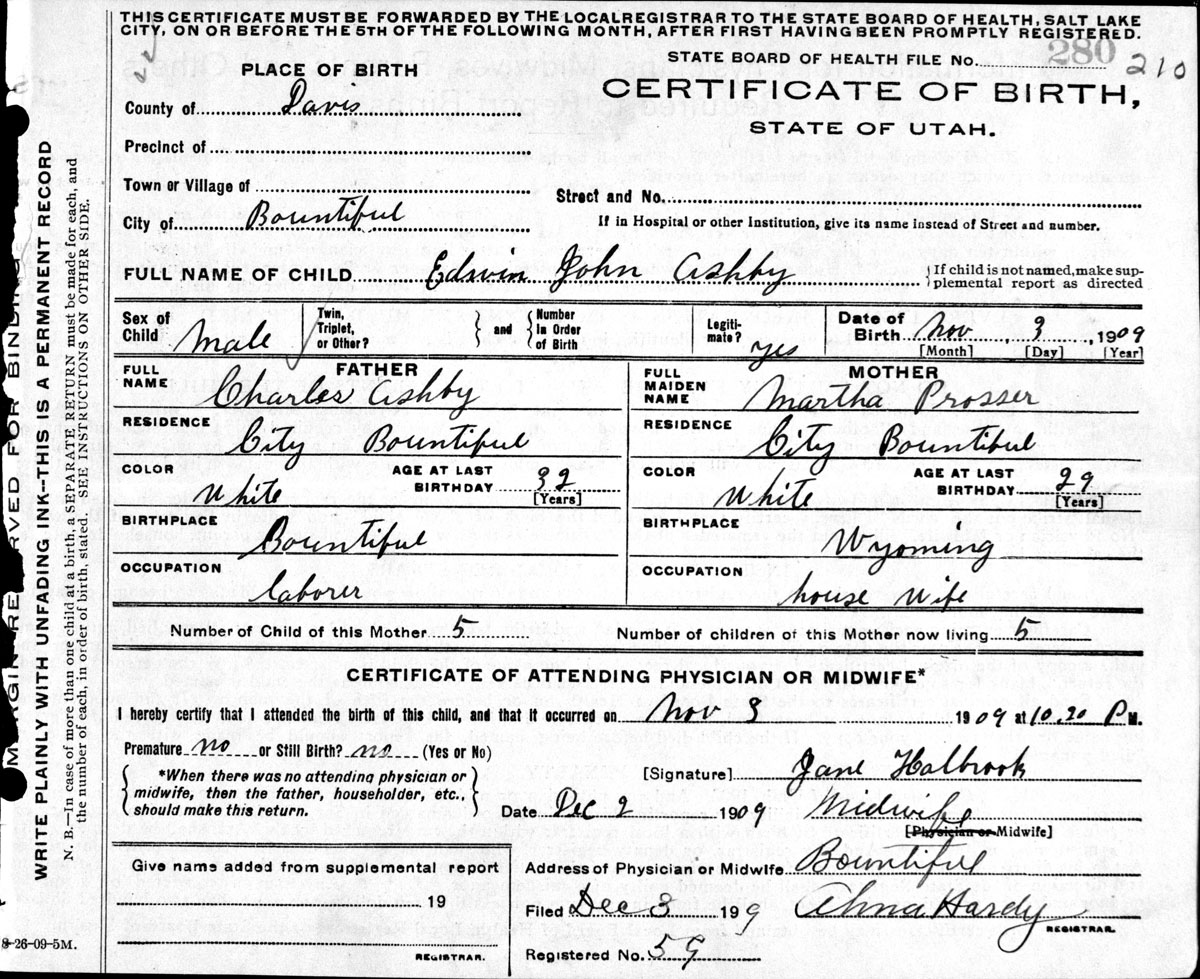 THIS CERTIFICATE MUST BE FORWARDED BY THE LOCAL REGISTRAR TO THE STATE BOARD OF HEALTH, SALT LAKE
CITY, ON OR BEFORE THE 5TH OF THE FOLLOWING MONTH, AFTER FIRST HAVING BEEN PROMPTLY REGISTERED.
STATE BOARD OF HEALTH FILE No. 280 210
PLACE OF BIRTH
CERTIFICATE OF BIRTH,
STATE OF UTAH.
County of Davis
Precinct of
Town or Village of
Street and No.
City of Bountiful
If in Hospital or other Institution, give its name instead of Street and number.
FULL NAME OF CHILD Edwin John Ashby
If child is not named, make sup-
plemental report as directed
Sex of Child Male
Twin, Triplet, or Other?
and
Number In Order of Birth
Legiti-mate? yes
Date of Birth Nov 3, 1909
[Month] [Day] [Year]
FATHER
FULL NAME Charles Ashby
RESIDENCE City Bountiful
COLOR White
AGE AT LAST BIRTHDAY 32
[Years]
BIRTHPLACE Bountiful
OCCUPATION laborer
MOTHER
FULL MAIDEN NAME Martha Prosser
RESIDENCE City Bountiful
COLOR White
AGE AT LAST BIRTHDAY 29
[Years]
BIRTHPLACE Wyoming
OCCUPATION house wife
Number of Child of this Mother 5
Number of children of this Mother now living 5
CERTIFICATE OF ATTENDING PHYSICIAN OR MIDWIFE*
I hereby certify that I attended the birth of this child, and that it occurred on Nov 3 1909 at 10.20 P M.
Premature no or Still Birth? no (Yes or No)
*When there was no attending physician or
midwife, then the father, householder, etc.,
should make this return.
[Signature] Jane Holbrook
Date Dec 2 1909 Midwife
[Physician or Midwife]
Give name added from supplemental report
19
REGISTRAR.
Address of Physician or Midwife Bountiful
Filed Dec 3 199 Alma Hardy
REGISTRAR.
Registered No. 59
8-26-09-5M.
MARGIN RESERVED FOR BINDING
WRITE PLAINLY WITH UNFADING INK--THIS IS A PERMANENT RECORD
N. B.—In case of more than one child at a birth, a SEPARATE RETURN must be made for each, and
the number of each, in order of birth, stated. SEE INSTRUCTIONS ON OTHER SIDE.